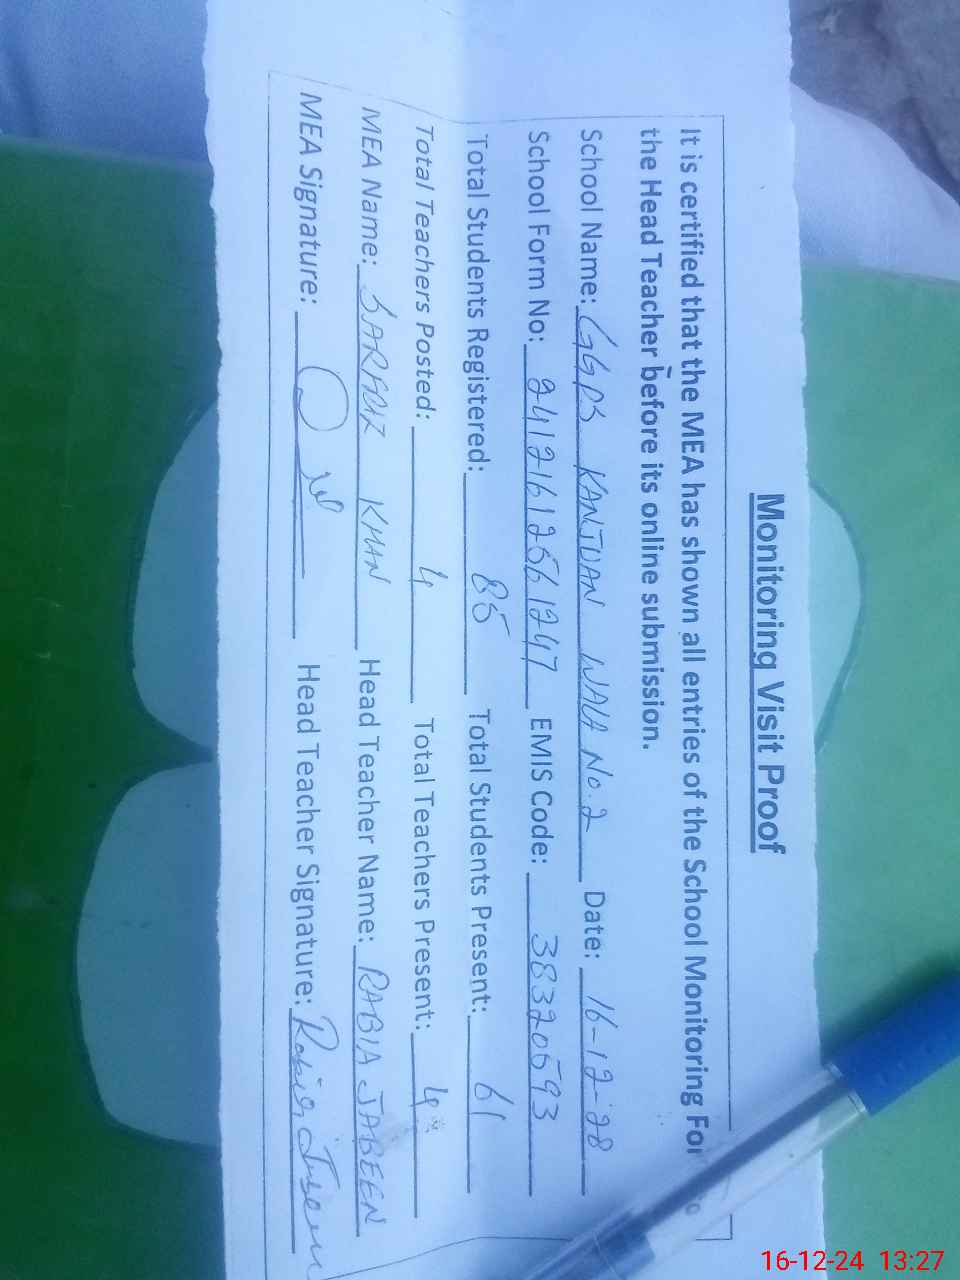 Monitoring Visit Proof
It is certified that the MEA has shown all entries of the School Monitoring For
the Head Teacher before its online submission.
School Name: GGPS KANJUAN WALA No.2 Date: 16-12-28
School Form No: 24121612561247 EMIS Code: 38320593
Total Students Registered: 85 Total Students Present: 61
Total Teachers Posted: 4 Total Teachers Present: 4
MEA Name: KHAN Head Teacher Name: RABIA JABEEN
MEA Signature: Head Teacher Signature: Rabia
16-12-24 13:27